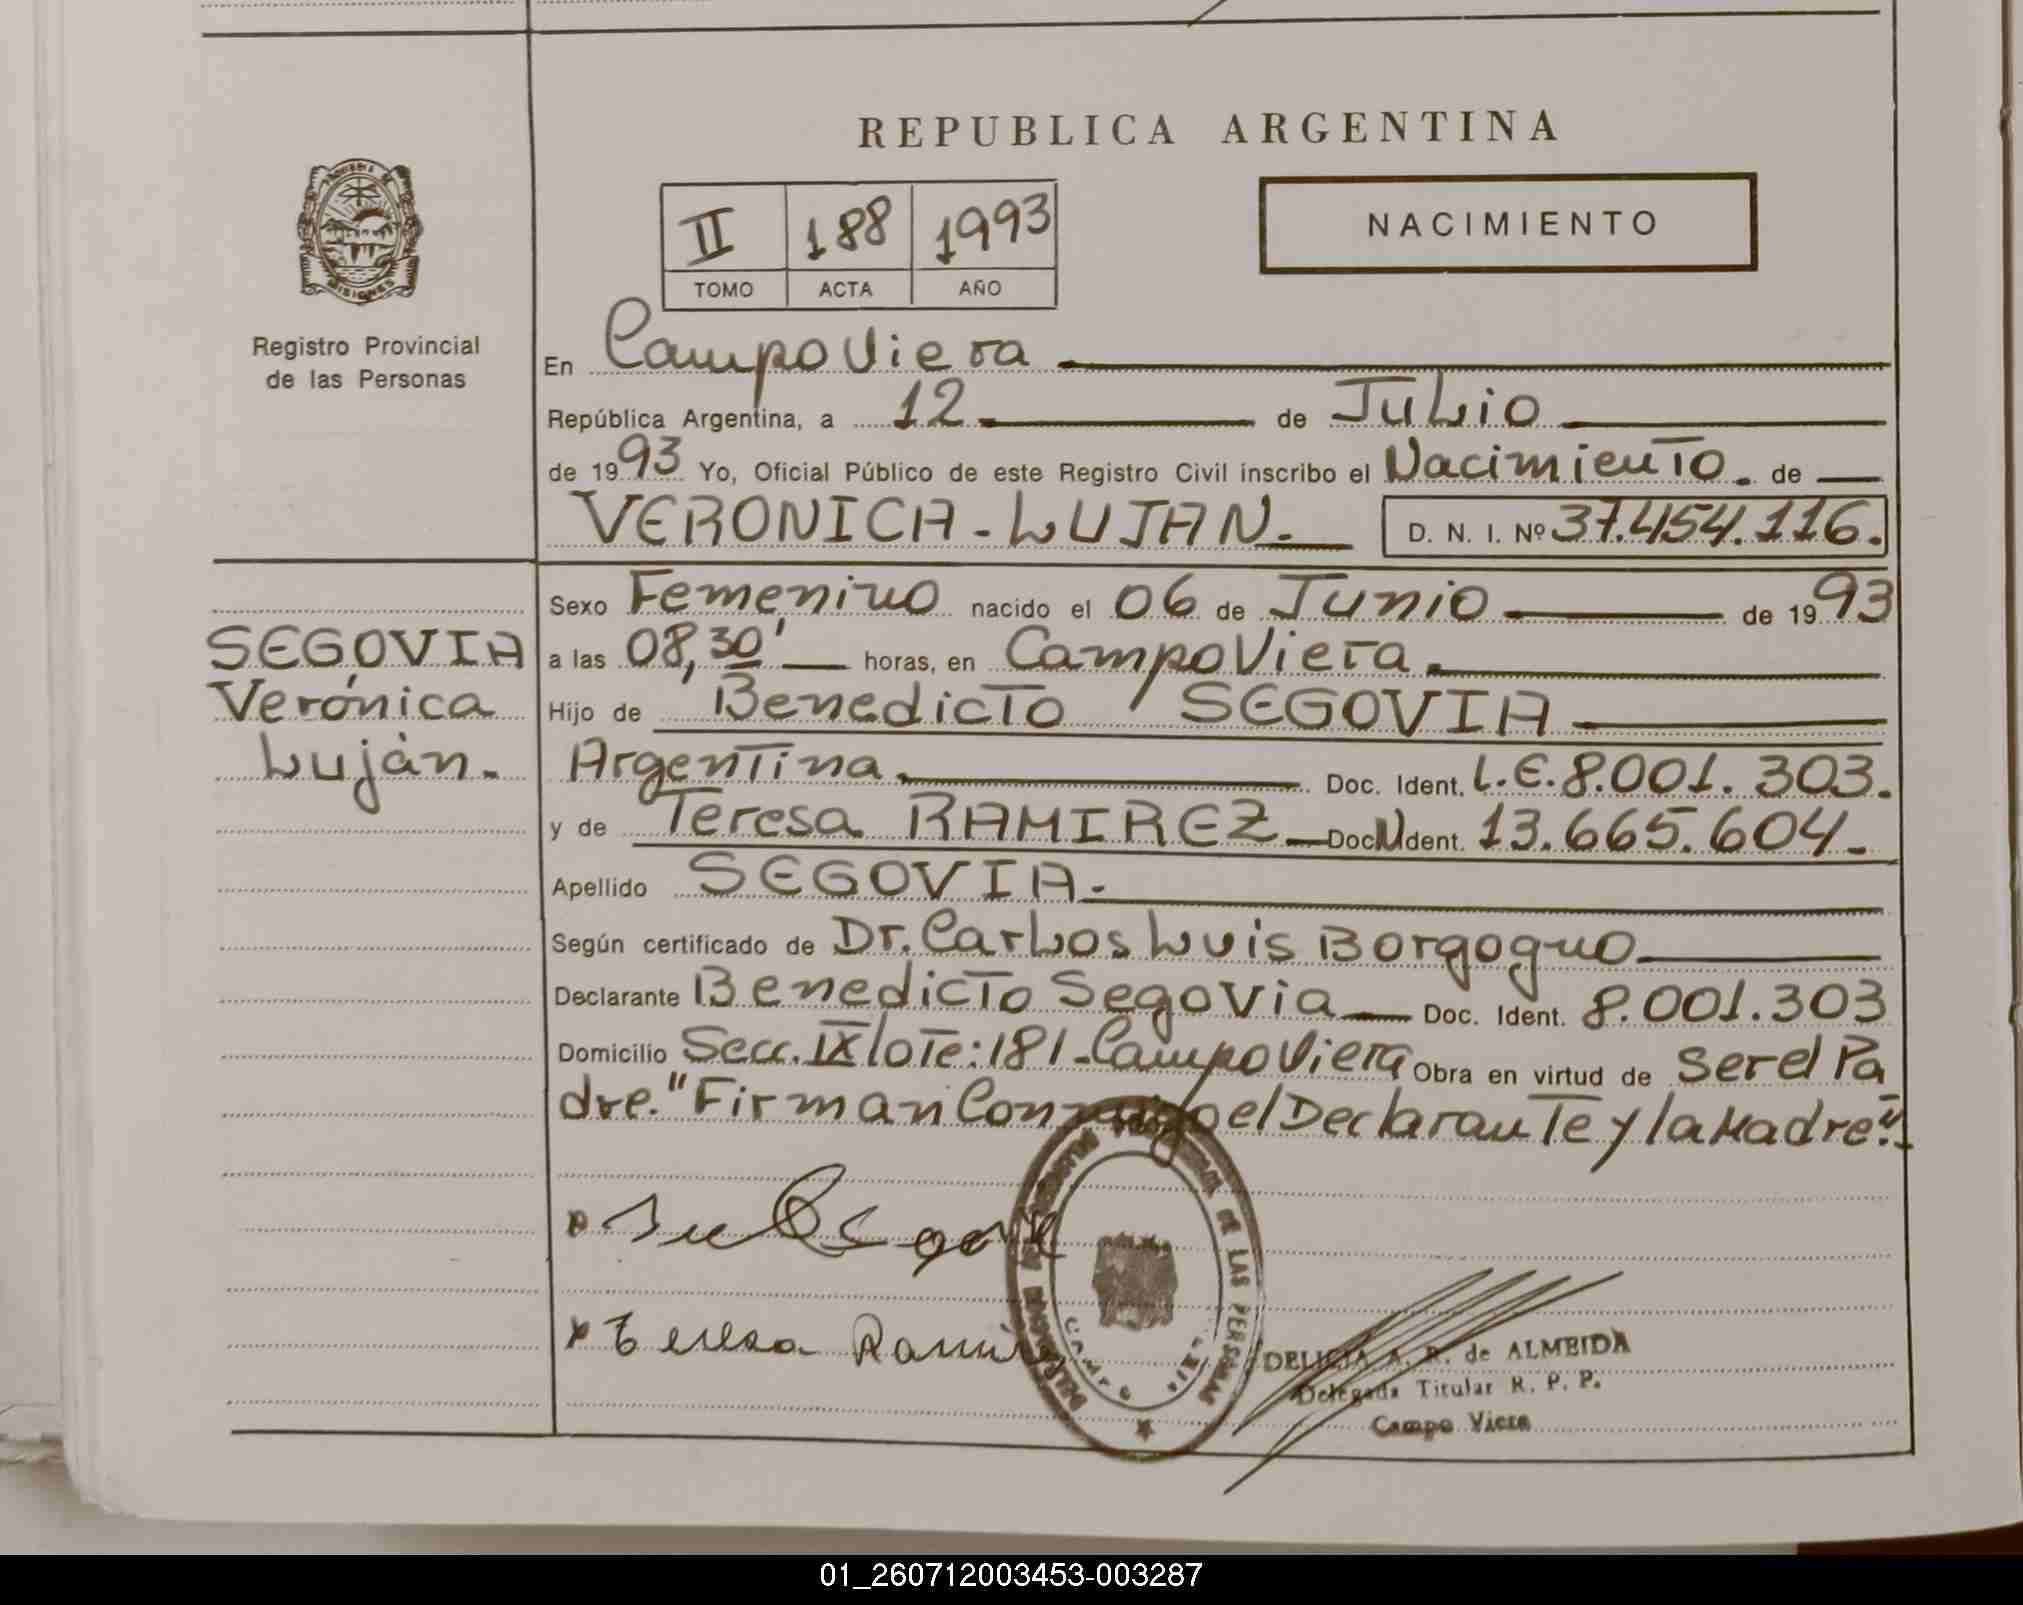 REPUBLICA ARGENTINA
II 188 1993
TOMO ACTA AÑO
NACIMIENTO
MISIONES
Registro Provincial
de las Personas
En Campo Viera
República Argentina, a 12 de Julio
de 1993 Yo, Oficial Público de este Registro Civil inscribo el Nacimiento. de
VERONICA-LUJAN. D. N. I. Nº 37.454.116.
SEGOVIA
Verónica
Luján.
Sexo Femenino nacido el 06 de Junio de 1993
a las 08,30' horas, en Campo Viera.
Hijo de Benedicto SEGOVIA
Argentina. Doc. Ident. L.E.8.001.303.
y de Teresa RAMIREZ Doc. Ident. 13.665.604.
Apellido SEGOVIA.
Según certificado de Dr. Carlos Luis Borgogno
Declarante Benedicto Segovia Doc. Ident. 8.001.303
Domicilio Secc. IX lote: 181-Campo Viera Obra en virtud de ser el Pa
dre. "Firman Conmigo el Declarante y la Madre".
Teresa Ramirez
DE LAS PERSONAS
CAMPO VIERA
DELICIA A. R. de ALMEIDA
Delegada Titular R. P. P.
Campo Viera
01_260712003453-003287